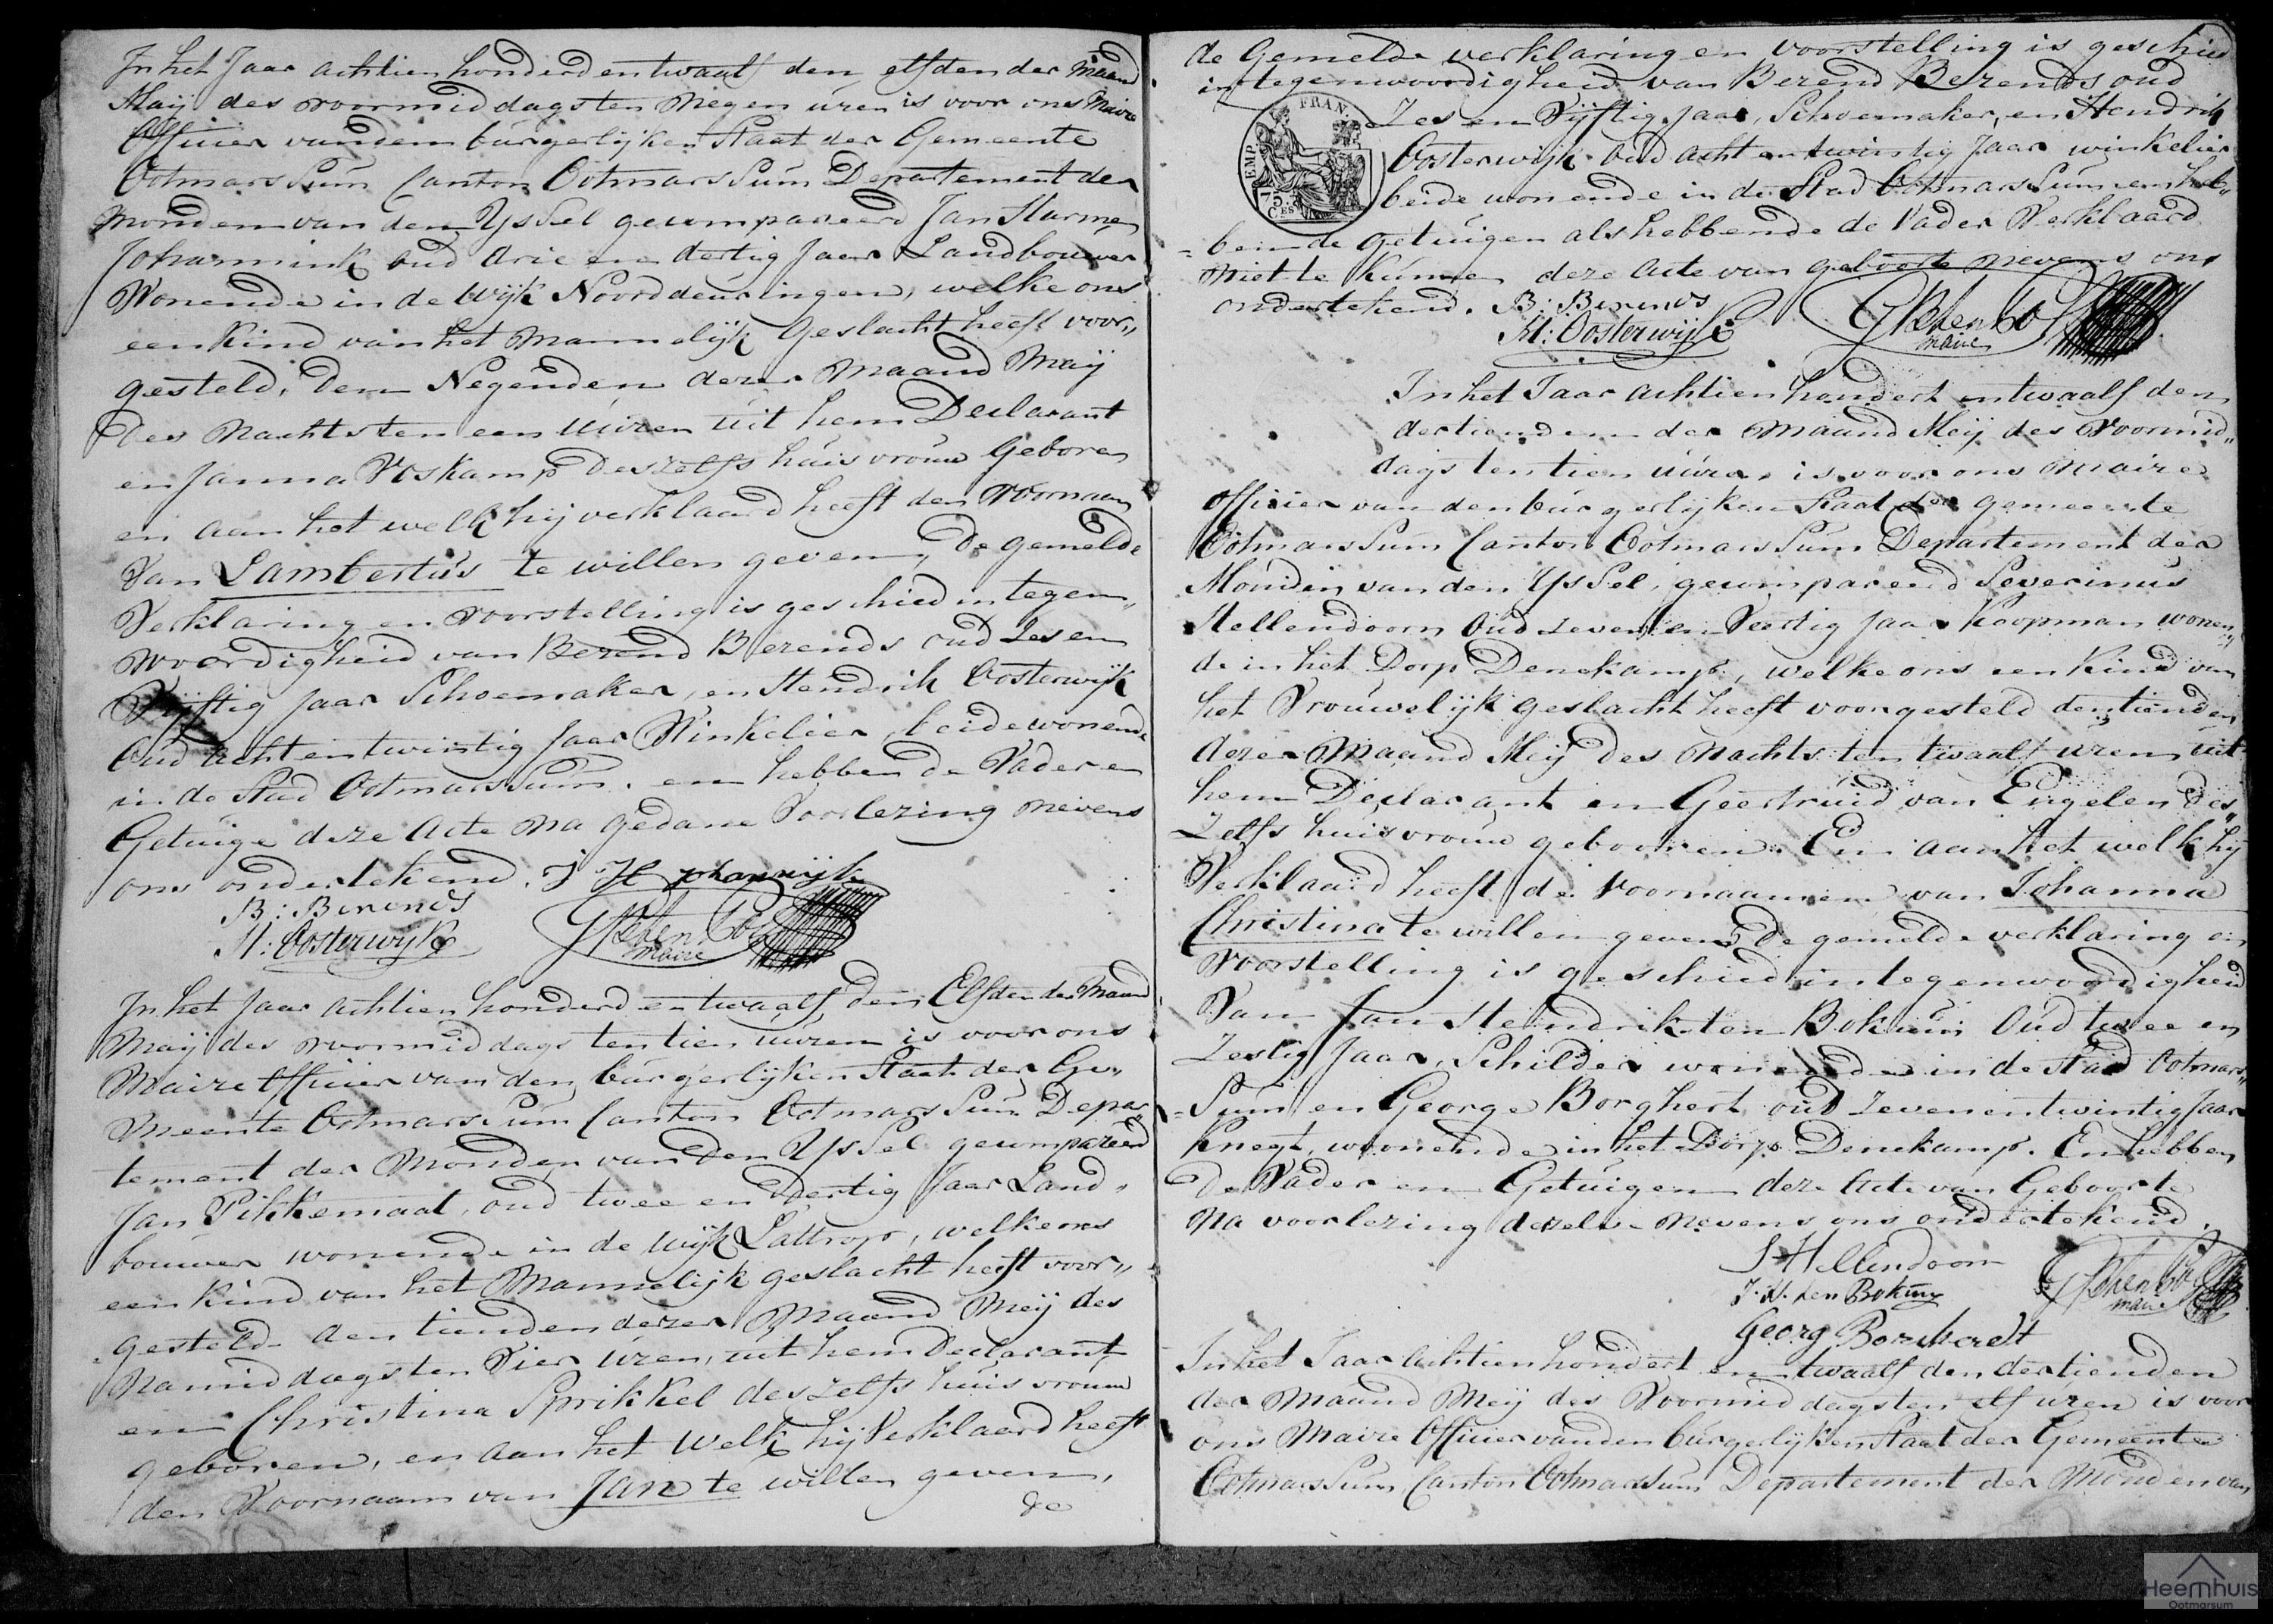 In het Jaar achtien honderd en twaalf den elfden der maand
Maij des voormiddags ten negen uren is voor ons Maire
Officier van den burgerlijken Staat der Gemeente
Ootmarssum Canton Ootmarssum Departement der
Monden van den Yssel gecompareerd Jan Harmen
Johannink oud drie en dertig Jaar Landbouwer
Wonende in de Wijk Noorddeuringen, welke ons
een kind van het Mannelijk geslacht heeft voor„
gesteld, den Negenden dezer Maand Maij
des Nachts ten een Uuren uit hem Declarant
en Janna Voskamp deszelfs huisvrouw Geboren
en aan het welk hij verklaard heeft den Voornaam
Van Lambertus te willen geven, De gemelde
Verklaring en voorstelling is geschied in tegen„
woordigheid van Berend Berends oud zes en
Vijftig Jaar Schoemaker, en Hendrik Oosterwijk
Oud acht en twintig Jaar Winkelier, beide wonende
in de Stad Ootmarssum. en hebben de Vader en
Getuige deze Acte na gedane Voorlezing nevens
ons ondertekend. J H Johannijk
B: Berends
H: Oosterwijk
maire
In het Jaar achtien honderd en twaalf den Elfden der Maand
Maij des voormiddags ten tien uuren is voor ons
Maire Officier van den burgerlijken Staat der Ge„
meente Ootmarssum Canton Ootmarssum Depar„
tement der Monden van den Yssel gecompareerd
Jan Pikkemaat, oud twee en dertig Jaar Land„
bouwer wonende in de Wijk Lattrop, welke ons
een kind van het Mannelijk geslacht heeft voor„
gesteld den tienden dezer Maand Meij des
Namiddags ten Vier Uren, uit hem Declarant
en Christina Sprikkel deszelfs huisvrouw
geboren, en aan het welk hij Verklaard heeft
den Voornaam van Jan te willen geven,
de
de Gemelde verklaring en voorstelling is geschied
in tegenwoordigheid van Berend Berends oud
Zes en Vijftig Jaar, Schoemaker, en Hendrik
Oosterwijk oud acht en twintig Jaar winkelier
beide wonende in de Stad Ootmarssum en heb„
bende getuigen als hebbende de Vader Verklaard
niet te kunnen deze Acte van geboorte nevens ons
ondertekend. B: Berends
H: Oosterwijk
maire
EMP. FRAN.
75.
CES
In het Jaar achtien hondert en twaalf den
dertienden der Maand Meij des Voormid„
dags ten tien uuren, is voor ons Maire
Officier van den burgerlijken Staat der gemeente
Ootmarssum Canton Ootmarssum Departement der
Monden van den Yssel, gecompareerd Severinus
Hellendoorn Oud zeven en Veertig Jaar Koopman wonen„
de in het Dorp Denekamp, welke ons een Kind van
het Vrouwelijk geslacht heeft voorgesteld den tienden
dezer Maand Meij des Nachts ten twaalf uren uit
hem Declarant en Geertruid van Engelen des„
zelfs huisvrouw gebooren. En aan het welk hij
Verklaard heeft de Voornaamen van Johanna
Christina te willen geven, De gemelde verklaring en
Voorstelling is geschied in tegenwoordigheid
Van Jan Hendrik ten Bokum Oud twee en
Zestig Jaar, Schilder wonende in de Stad Ootmars„
sum en George Borghert oud zeven en twintig Jaar
Knegt, woonende in het Dorp Denekamp. En hebben
De Vader en Getuigen deze Acte van Geboorte
Na voorlezing dezelve Nevens ons ondertekend.
S Hellendoorn
J. H. ten Bokum
maire
Georg Borcherdt
In het Jaar Achtien hondert en twaalf den dertienden
der Maand Meij des Voormiddags ten elf uren is voor
ons Maire Officier van den burgerlijken Staat der Gemeente
Ootmarssum Canton Ootmarssum Departement der Monden van
Heemhuis
Ootmarsum